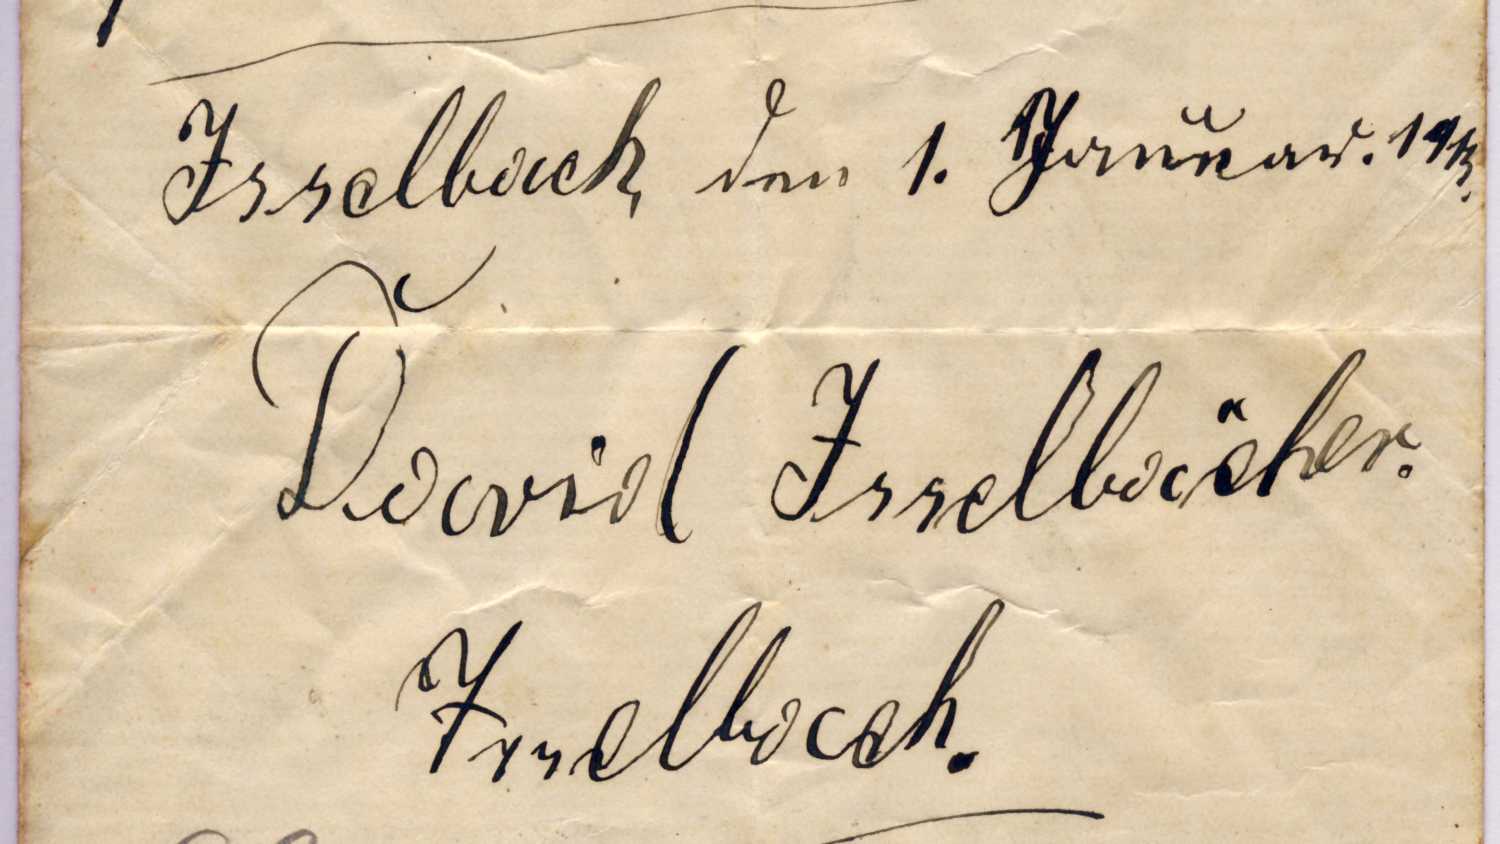 Isselbach, den 1. Januar.
David Isselbächer.
Isselbach.